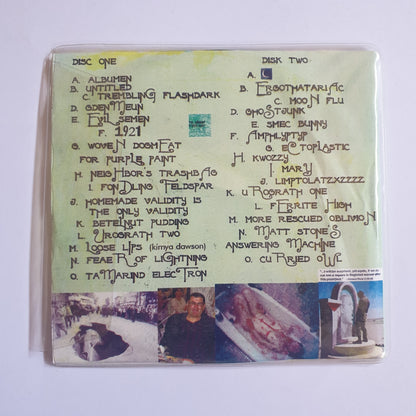 DISC ONE
A. ALBUMEN
B. UNTITLED
C. TREMBLING FLASHDARK
D. ODENMEUN
E. EVIL SEMEN
F. 1921
G. WOVEN DOGMEAT
FOR PURPLE PAINT
H. NEIGHBOR'S TRASHBAG
I. FONDLING FELDSPAR
J. HOMEMADE VALIDITY IS
THE ONLY VALIDITY
K. BETELNUT PUDDING
L. UROGRATH TWO
M. LOOSE LIPS (kimya dawson)
N. FEAR OF LIGHTNING
O. TAMARIND ELECTRON
DISK TWO
A.
B. ERGOTHATARIAC
C. MOON FLU
D. GHOSTJUNK
E. SMEC BUNNY
F. AMPHLYPTYP
G. ECTOPLASTIC
H. KWOZZY
I. MARY
J. LIMPTOLATZXZZZZ
K. UROGRATH ONE
L. FERRITE HIGH
M. MORE RESCUED OBLIVION
N. MATT STONE'S
ANSWERING MACHINE
O. CURRIED OWL